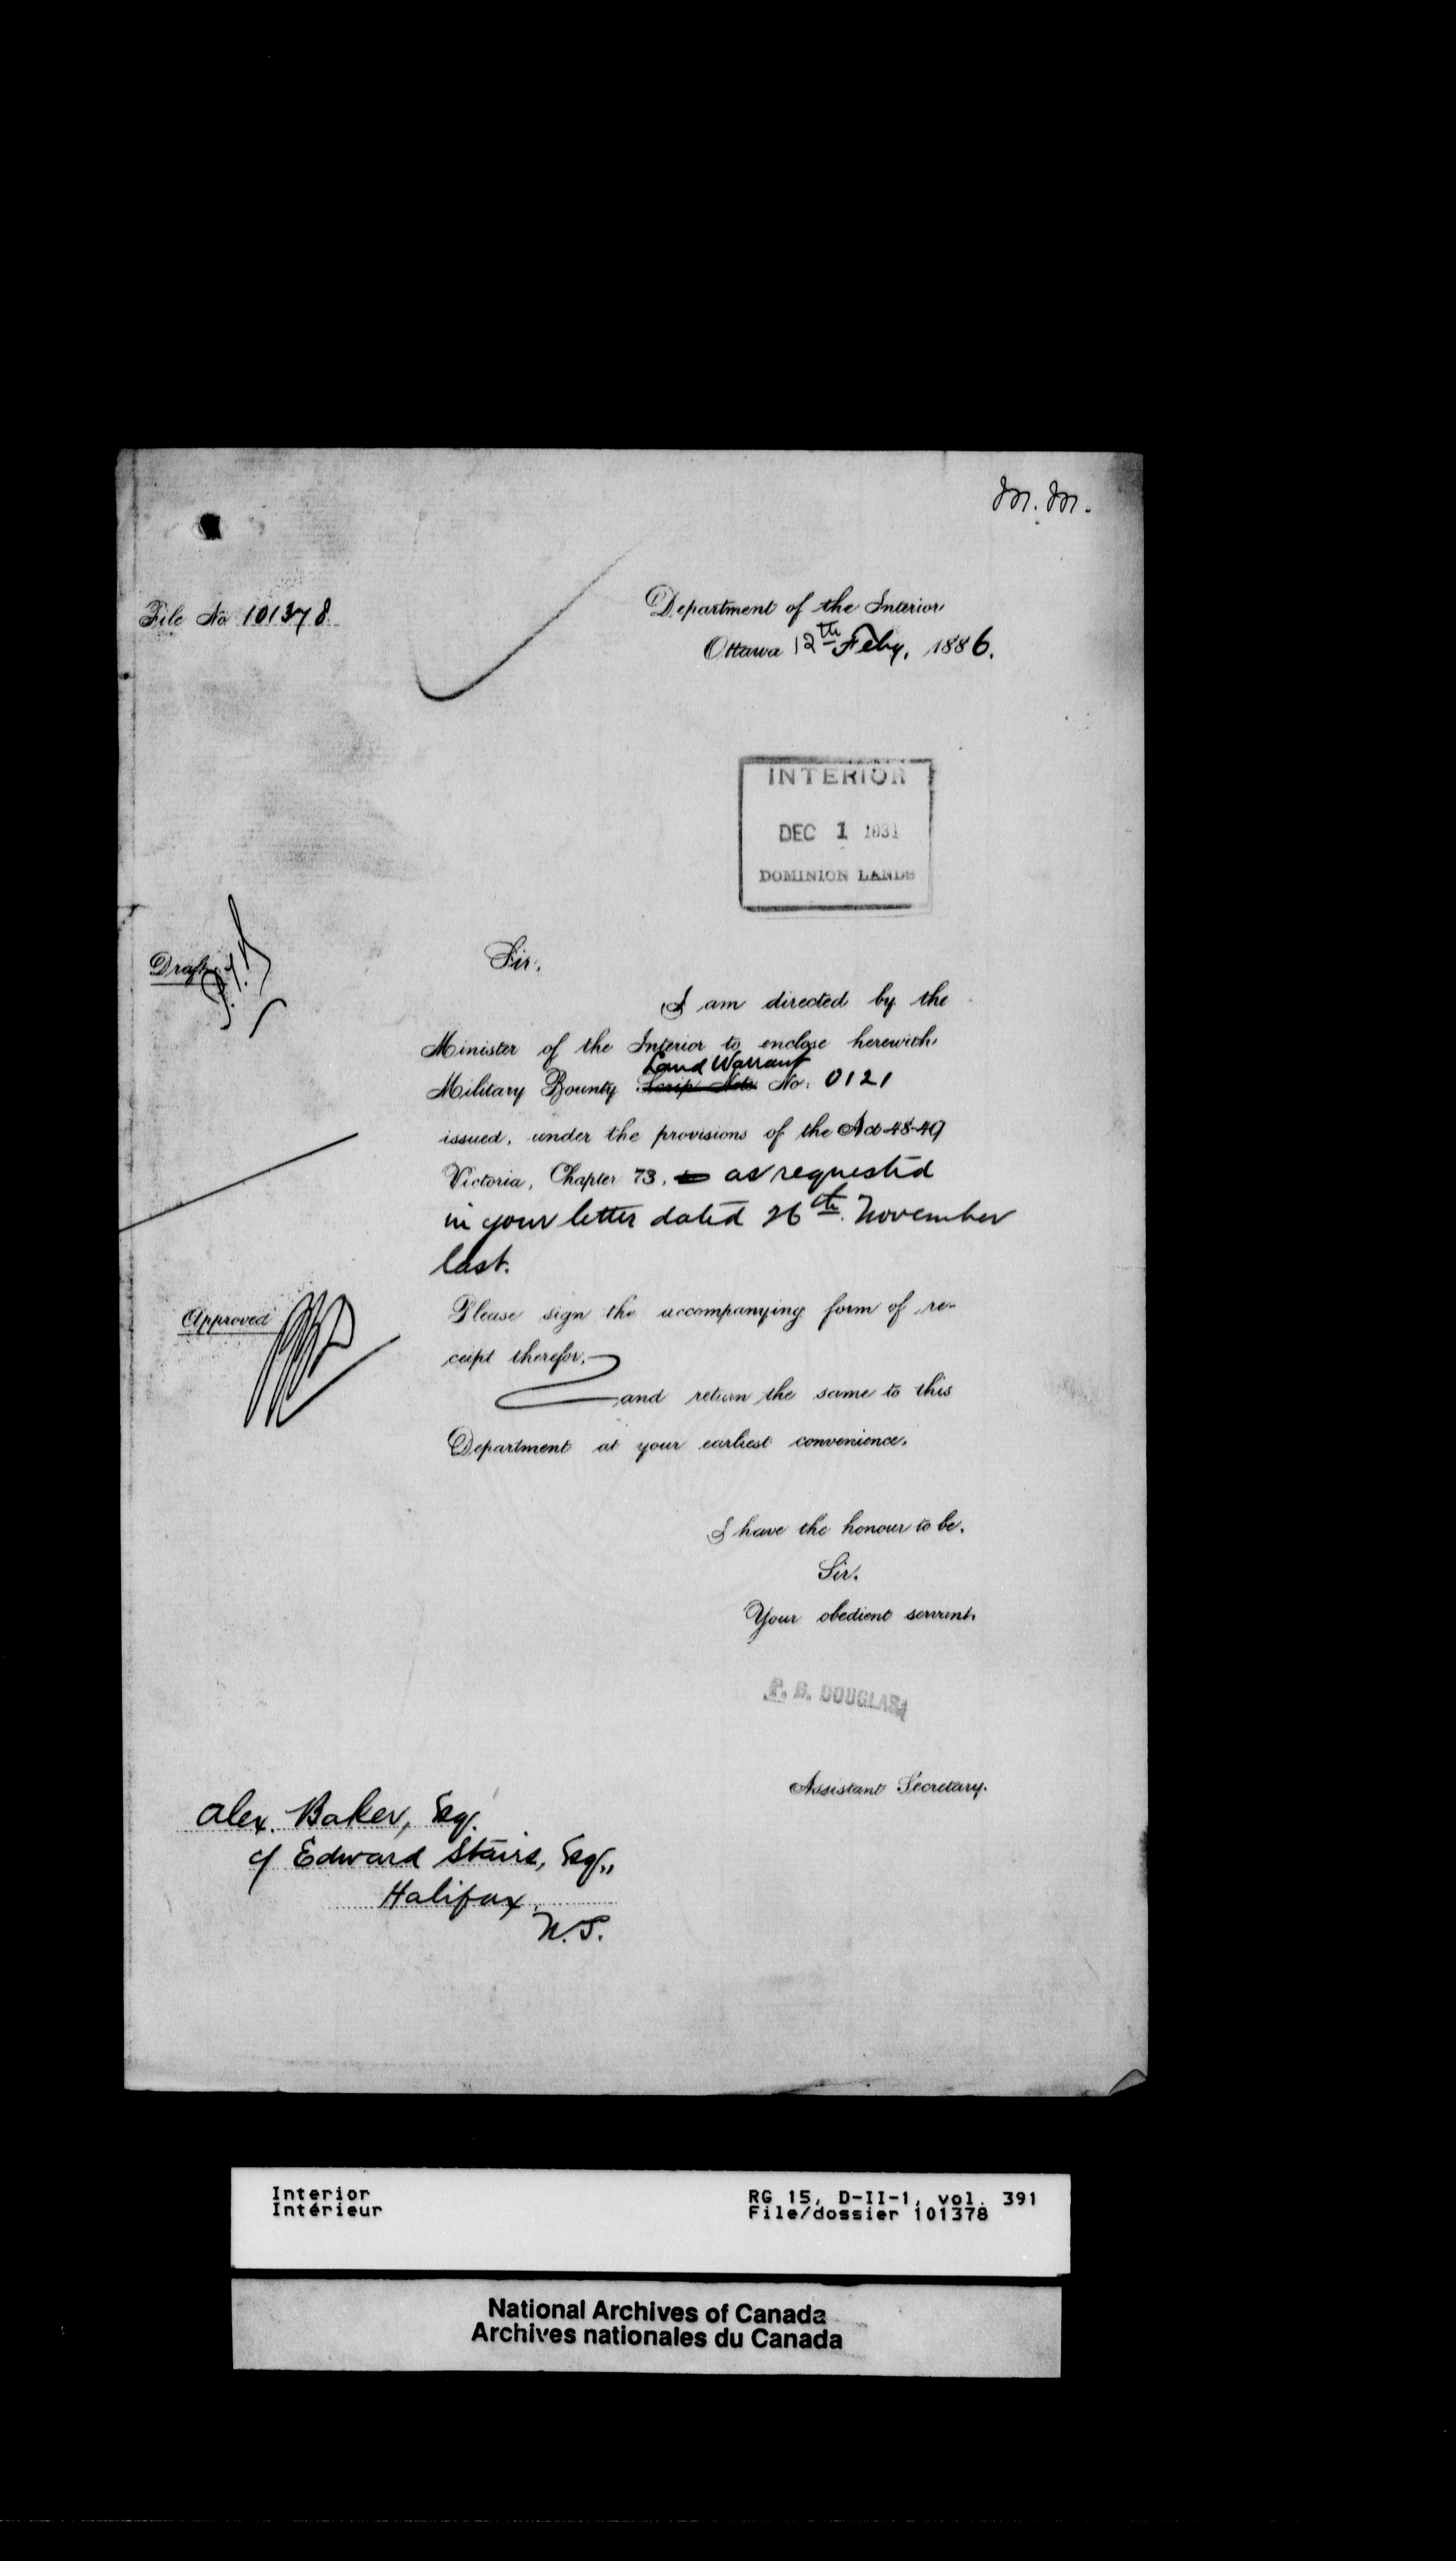 M.M.
File No 101378
Department of the Interior
Ottawa 12th Feby, 1886.
INTERIOR
DEC 1 1931
DOMINION LANDS
Draft
Sir,
I am directed by the
Minister of the Interior to enclose herewith
Land Warrant
Military Bounty Scrip Note No. 0121
issued, under the provisions of the Act 48-49
Victoria, Chapter 73, as requested
in your letter dated 26th November
last.
Approved
Please sign the accompanying form of re-
ceipt therefor,
and return the same to this
Department at your earliest convenience.
I have the honour to be,
Sir.
Your obedient servant,
P. B. DOUGLAS,
Assistant Secretary.
Alex. Baker, Esq.
c/ Edward Stairs, Esq.,
Halifax,
N.S.
Interior
Intérieur
RG 15, D-II-1, vol. 391
File/dossier 101378
National Archives of Canada
Archives nationales du Canada